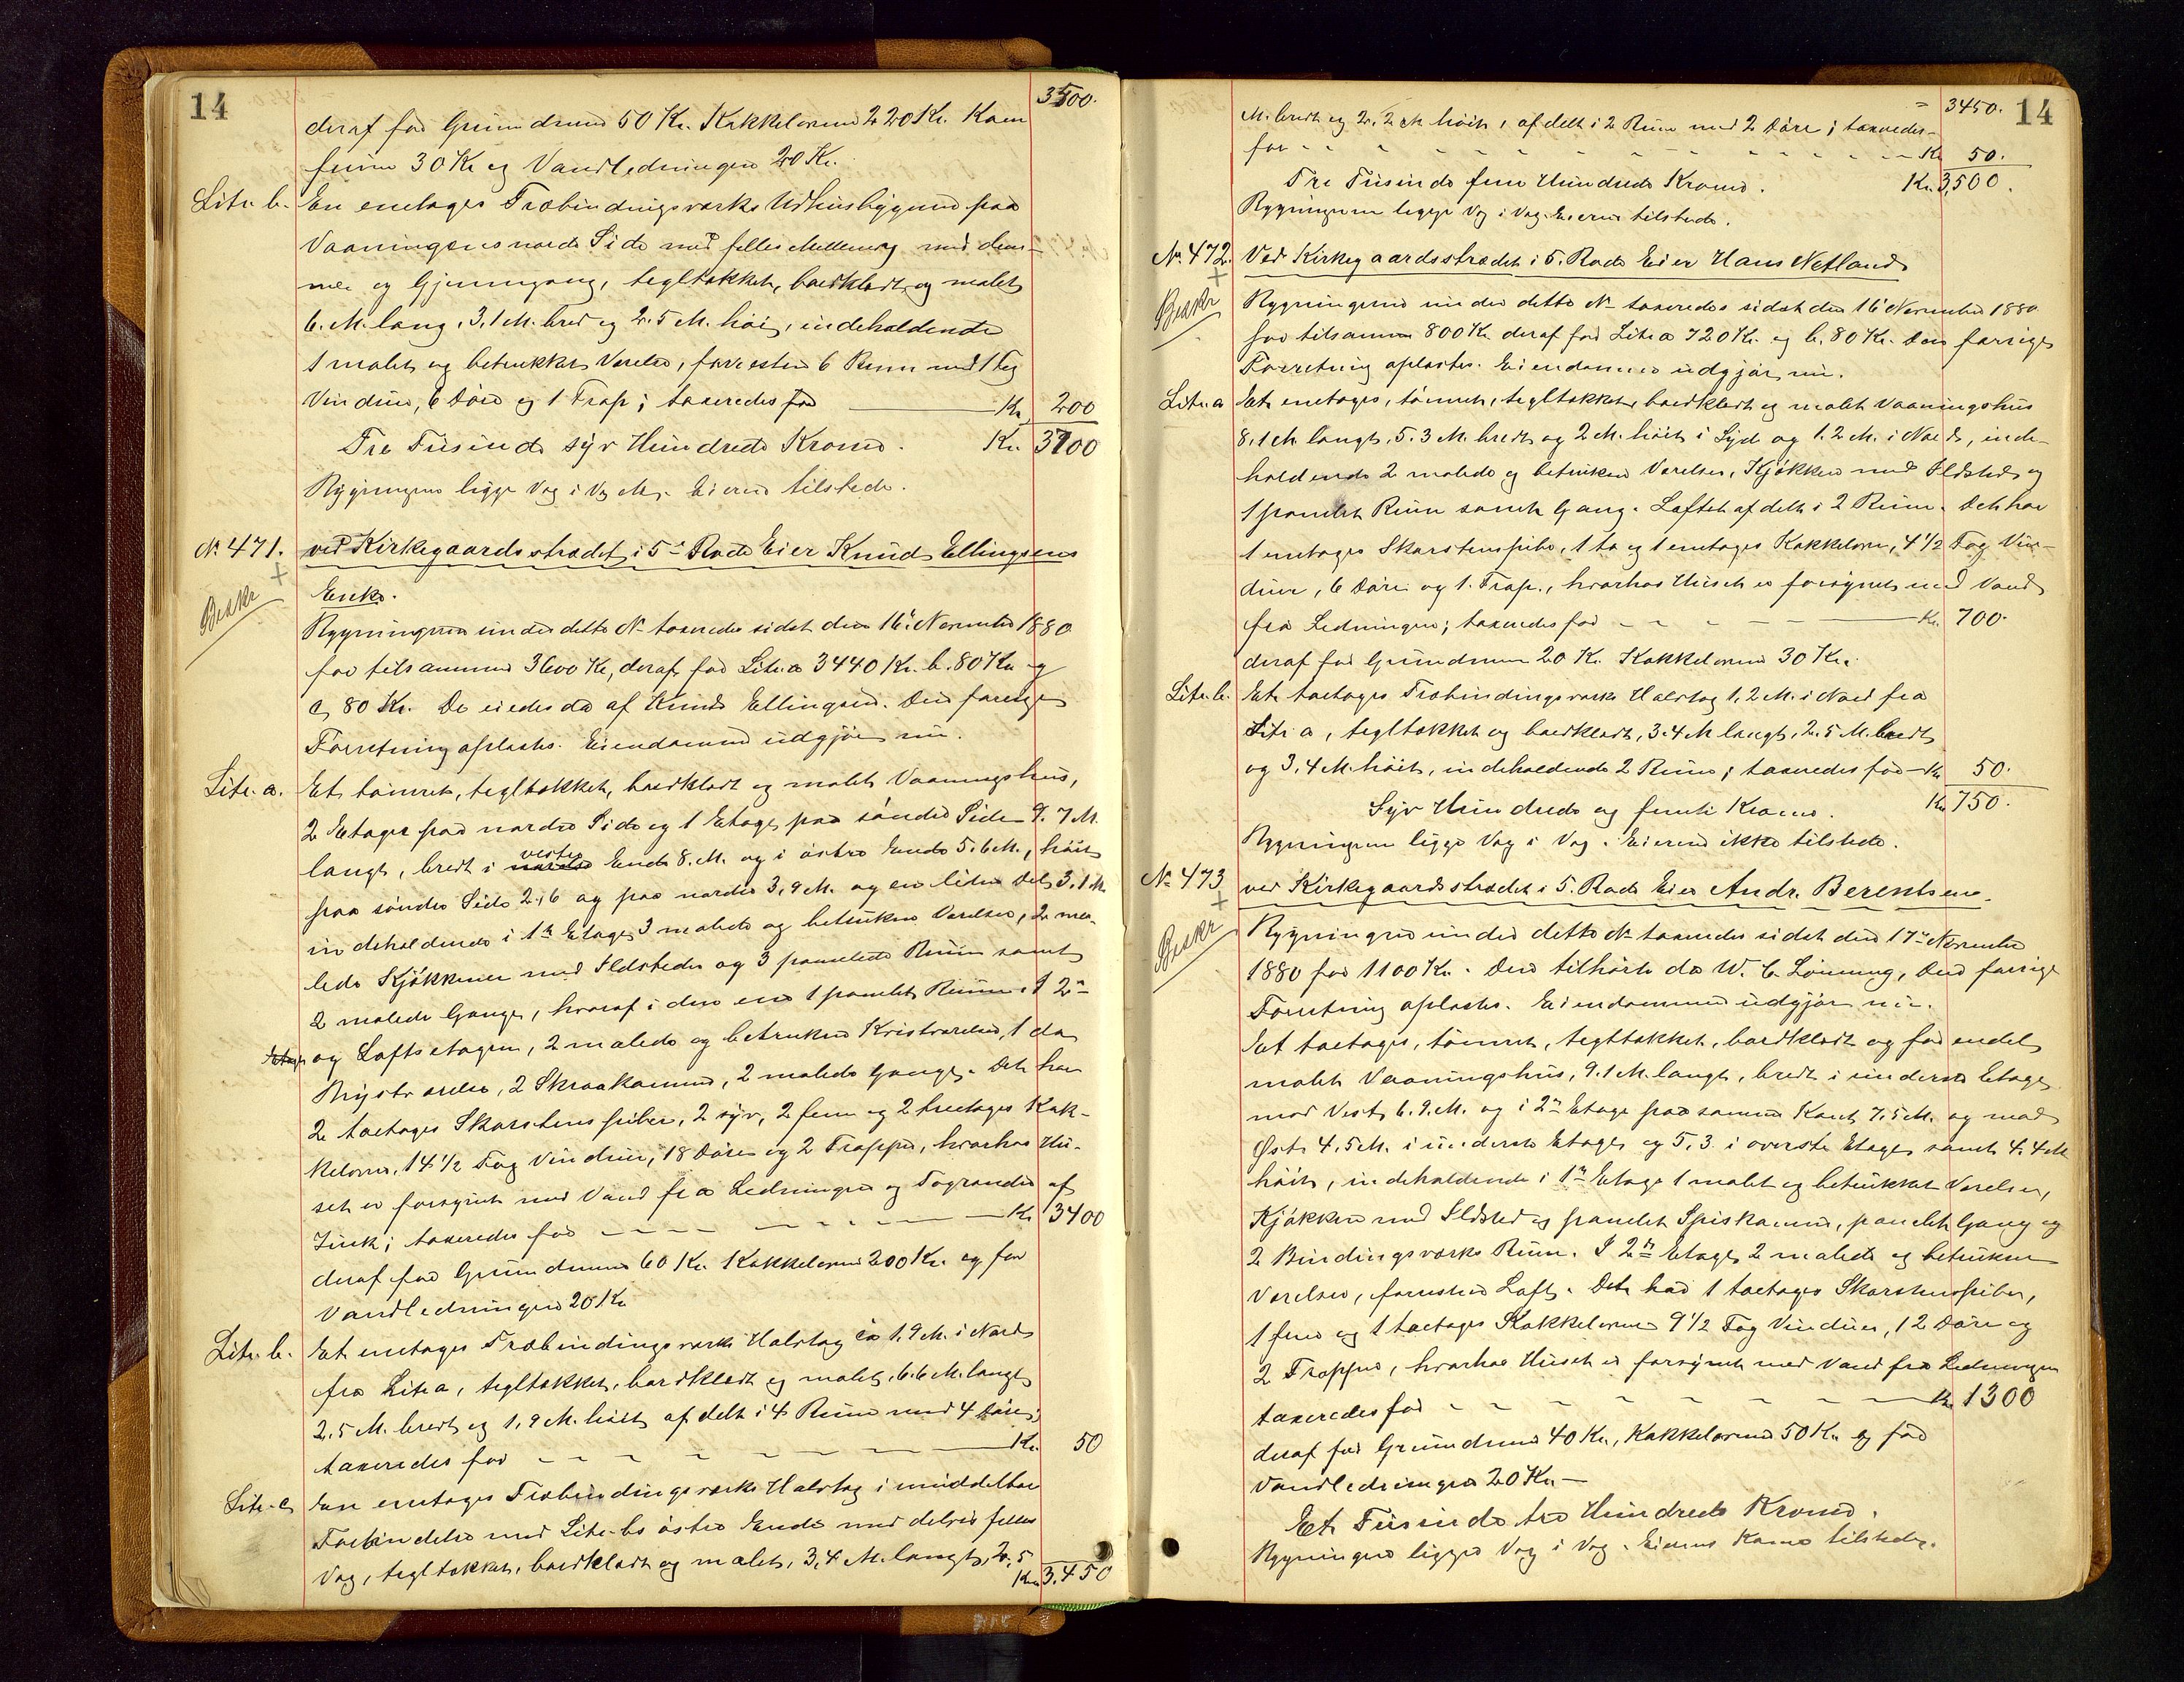 14
3500.
deraf for Grundmur 50 Kr. Kakkelovne 220 Kr. Kom
furer 30 Kr og Vandledningen 20 Kr.
Litr. b. En enetages Træbindingsværks Udhusbygning paa
Vaaningens nordre Side med felles Mellemvæg med den-
ne og Gjennemgang, tegltækket, bordklædt og malet
6. M. lang, 3,1 M. bred og 2.5 M. høi, indeholdende
1 malet og betrukket Værelse, forresten 6 Rum med 1 Fag
Vinduer, 6 Døre og 1 Trap; taxeredes for — Kr. 200
Tre Tusinde syv Hundrede Kroner. Kr. 3700
Bygningerne ligge Væg i Væg. Eieren tilstede.
No. 471. ved Kirkegaardsstrædet i 5te Rode Eier Knud Ellingsens
Beskr
Enke.
Bygningerne under dette No taxeredes sidst den 16de November 1880
for tilsammen 3600 Kr, deraf for Litr. a 3440 Kr. b. 80 Kr. og
c, 80 Kr. De eiedes da af Knud Ellingsen. Den forrige
Forretning oplæstes. Eiendommen udgjør nu.
Litr. a. Et tømret, tegltækket, bordklædt og malet Vaaningshus,
2 Etager paa nordre Side og 1 Etage paa søndre Side 9. 7 M.
langt, bredt i vestre Ende 8. M. og i østre Ende 5. 6 M., høit
paa søndre Side 2,6 og paa nordre 3,9 M. og en liden Del 3.1 M.
indeholdende i 1ste Etage 3 malede og betrukne Værelser, 2 ma-
lede Kjøkkener med Ildsteder og 3 panelede Rum samt
2 malede Gange, hvoraf i den ene 1 panelet Rum. I 2den
og Loftsetagen, 2 malede og betrukne Kvistværelser, 1 do
Kvistværelse, 2 Skraakamre, 2 malede Gange. Det har
2 toetages Skorstenspiber, 2 syv, 2 fem og 2 treetages Kak-
kelovne, 14 1/2 Fag Vinduer, 18 Døre og 2 Trapper, hvorhos Hu-
set er forsynet med Vand fra Ledningen og Tagrender af
Zink; taxeredes for — Kr 3400
deraf for Grundmure 60 Kr. Kakkelovne 200 Kr. og for
Vandledningen 20 Kr
Litr. b. Et enetages Træbindingsværks Halvtag ca 1.9 M. i Nord
fra Litr a, tegltækket, bordklædt og malet, 6.6 M. langt
2.5 M. bredt og 1,9 M. høit afdelt i 4 Rum med 4 Døre;
taxeredes for — Kr. 50
Litr. c En enetages Træbindingsværks Halvtag i umiddelbar
Forbindelse med Litr. bs østre Ende med delvis felles
Væg, tegltækket, bordklædt og malet, 3,4 M. langt, 2,5
Kr. 3,450
14
3450.
M. bredt og 2.2 M høit, afdelt i 2 Rum med 2 Døre; taxeredes
for — Kr 50.
Tre Tusinde fem Hundrede Kroner. Kr. 3,500.
Bygningerne ligge Væg i Væg. Eieren tilstede.
No. 472. Ved Kirkegaardsstrædet i 5. Rode Eier Hans Netland
Beskr
Bygningerne under dette No taxeredes sidst den 16de November 1880
for tilsammen 800 Kr. deraf for Litr a 720 Kr. og b. 80 Kr. Den forrige
Forretning oplæstes. Eiendommen udgjør nu.
Litr. a Et enetages, tømret, tegltækket, bordklædt og malet Vaaningshus
8.1 M. langt, 5.3 M. bredt og 2 M. høit i Syd og 1.2 M. i Nord, inde-
holdende 2 malede og betrukne Værelser, Kjøkken med Ildsted og
1 panelet Rum samt Gang. Loftet afdelt i 2 Rum. Det har
1 enetages Skorstenspibe, 1 to og 1 enetages Kakkelovn, 4 1/2 Fag Vin-
duer, 6 Døre og 1. Trap., hvorhos Huset er forsynet med Vand
fra Ledningen; taxeredes for — Kr. 700.
deraf for Grundmure 20 Kr. Kakkelovne 30 Kr.
Litr. b. Et toetages Træbindingsværks Halvtag 1,2 M. i Nord fra
Litr a, tegltækket og bordklædt, 3.4 M langt, 2.5 M. bredt
og 3,4 M. høit, indeholdende 2 Rum; taxeredes for — Kr 50.
Syv Hundrede og femti Kroner. Kr 750.
Bygningerne ligge Væg i Væg. Eieren ikke tilstede.
No 473 ved Kirkegaardsstrædet i 5. Rode Eier Andr. Berentsen.
Beskr
Bygningen under dette No taxeredes sidst den 17de November
1880 for 1100 Kr. Den tilhørte da W. C Lønning, Den forrige
Forretning oplæstes. Eiendommen udgjør nu.
Et toetages, tømret, tegltækket, bordklædt og for endel
malet Vaaningshus, 9.1 M. langt, bredt i underste Etage
mod Vest 6.9. M. og i 2den Etage paa samme Kant 7.5 M. og mod
Øst 4.5 M. i underste Etage og 5,3 i øverste Etage samt 4.4 M
høit, indeholdende i 1ste Etage 1 malet og betrukket Værelse,
Kjøkken med Ildsted og panelet Spiskammer, panelet Gang og
2 Bindingsværks Rum. I 2den Etage 2 malede og betrukne
Værelser, forresten Loft. Det har 1 toetages Skorstenspibe,
1 fem og 1 toetages Kakkelovne 9 1/2 Fag Vinduer, 12 Døre og
2 Trapper, hvorhos Huset er forsynet med Vand fra Ledningen
taxeredes for — Kr. 1300
deraf for Grundmure 40 Kr., Kakkelovne 50 Kr. og for
Vandledningen 20 Kr. —
Et Tusinde tre Hundrede Kroner.
Bygningen ligger Væg i Væg. Eierens Kone tilstede.